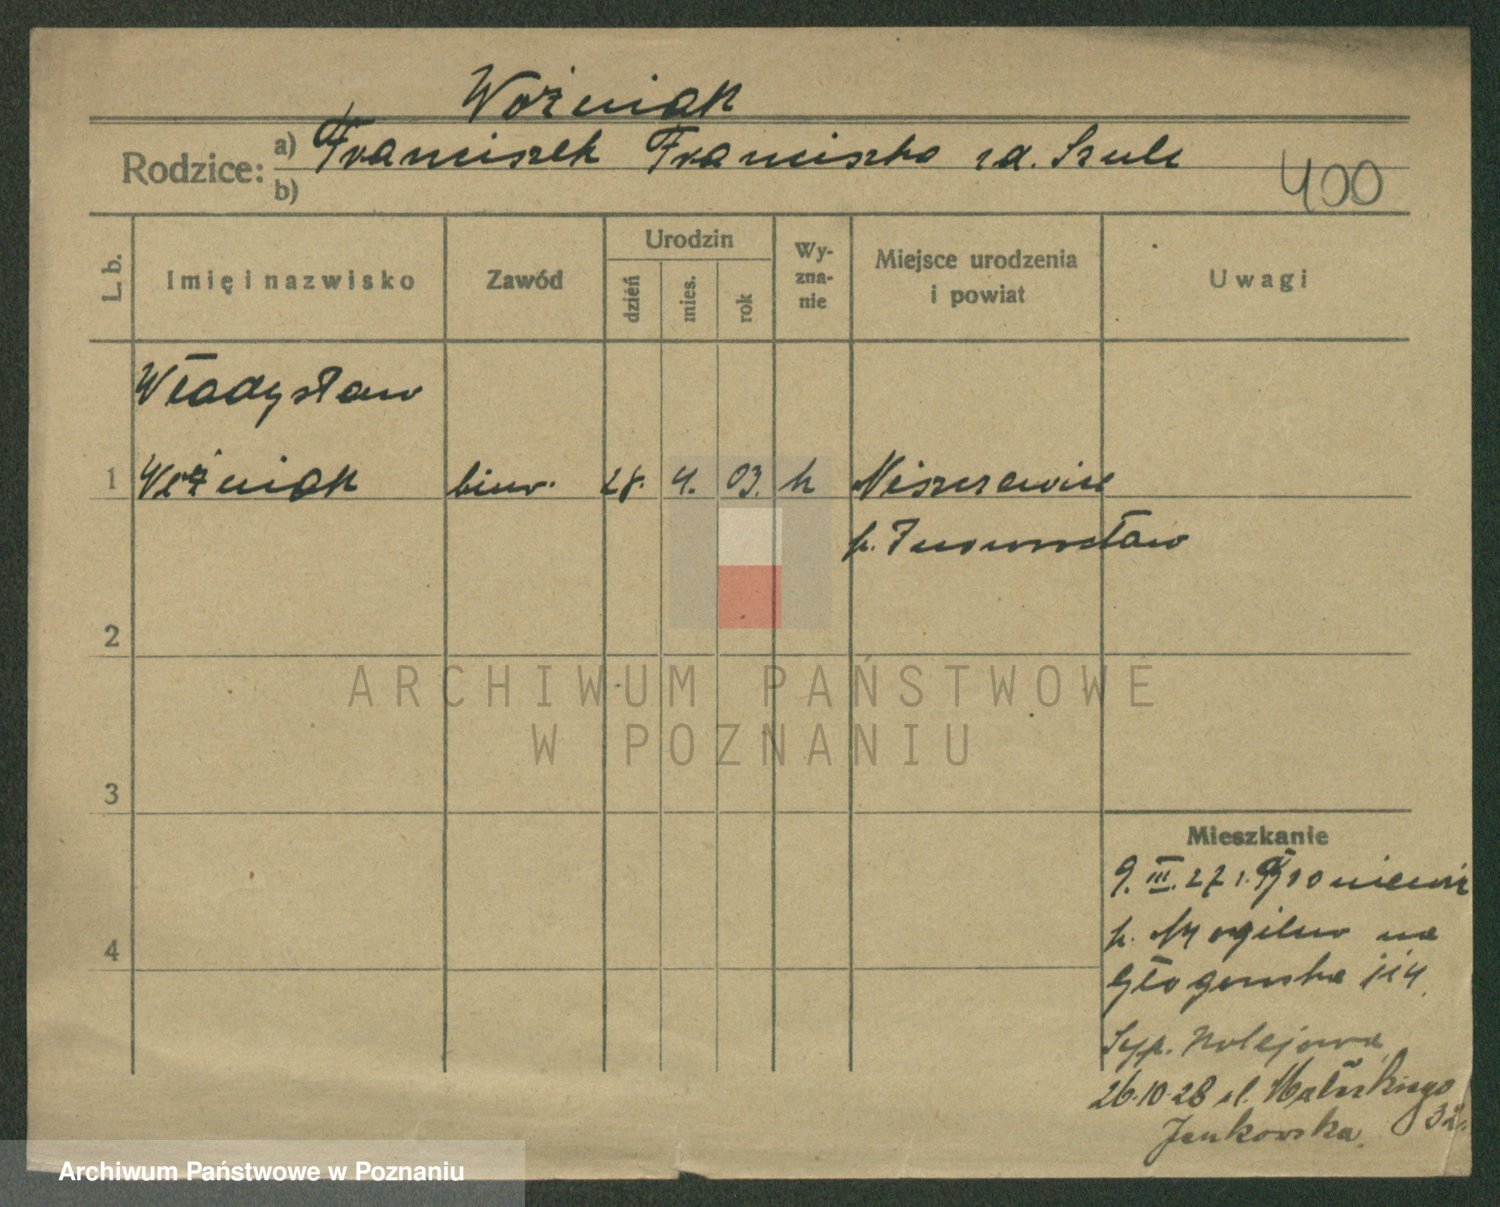 Woźniak
Rodzice: a) Franciszek Franciszka zd. Szulc
b)
400
L. b. Imię i nazwisko Zawód Urodzin dzień mies. rok Wyznanie Miejsce urodzenia i powiat Uwagi
Władysław
1 Woźniak biur. 28. 4. 03. k
p. Inowrocław
2
ARCHIWUM PAŃSTWOWE
W POZNANIU
3
Mieszkanie
9. III. 27 z
p. Mogilno na
4
Głogowska 114
Kolejowa
26.10.28 ul. 32.
Jankowska.
Archiwum Państwowe w Poznaniu